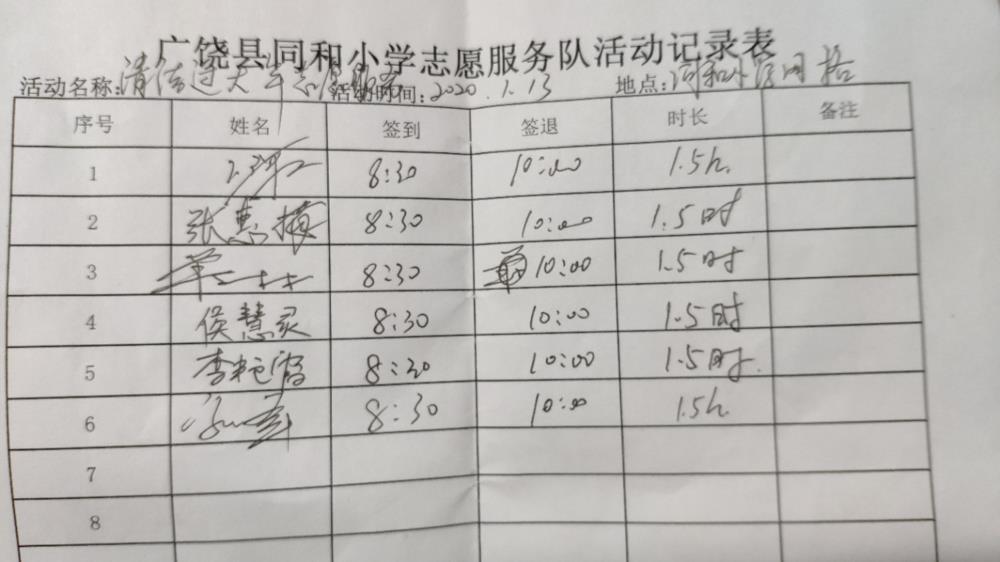 广饶县同和小学志愿服务队活动记录表
活动名称:清洁过大年志愿服务 活动时间:2020.1.13 地点:同和小学网格
序号 姓名 签到 签退 时长 备注
1 8:30 10:00 1.5h.
2 张惠梅 8:30 10:00 1.5时
3 8:30 10:00 1.5时
4 侯慧灵 8:30 10:00 1.5时
5 李 8:30 10:00 1.5时.
6 8:30 10:00 1.5h.
7
8